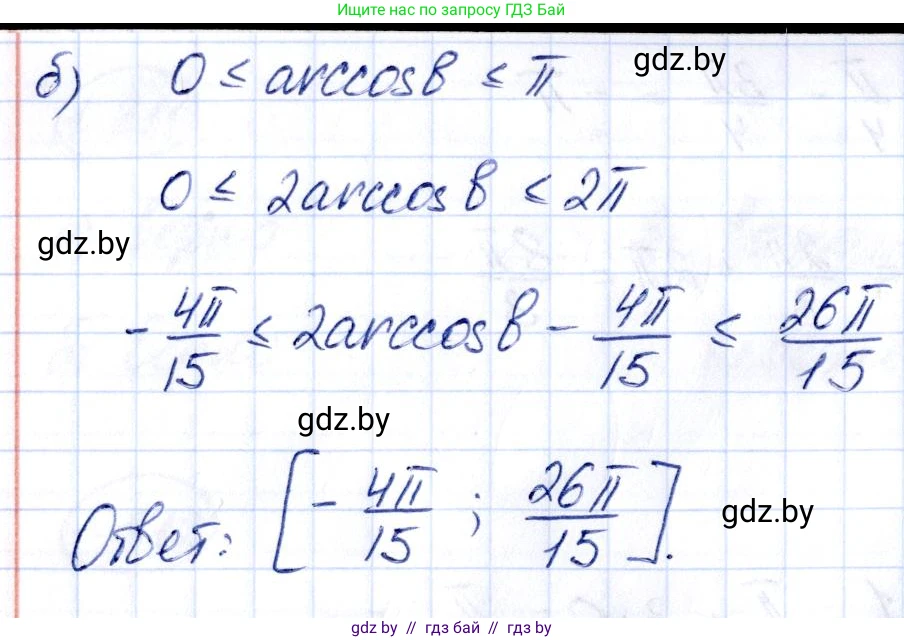 Ищите нас по запросу ГДЗ Бай
б) 0 ≤ arccos b ≤ π gdz.by
0 ≤ 2arccos b ≤ 2π
gdz.by
-4π/15 ≤ 2arccos b - 4π/15 ≤ 26π/15
gdz.by
Ответ: [-4π/15 ; 26π/15]. gdz.by
gdz.by // гдз бай // гдз by